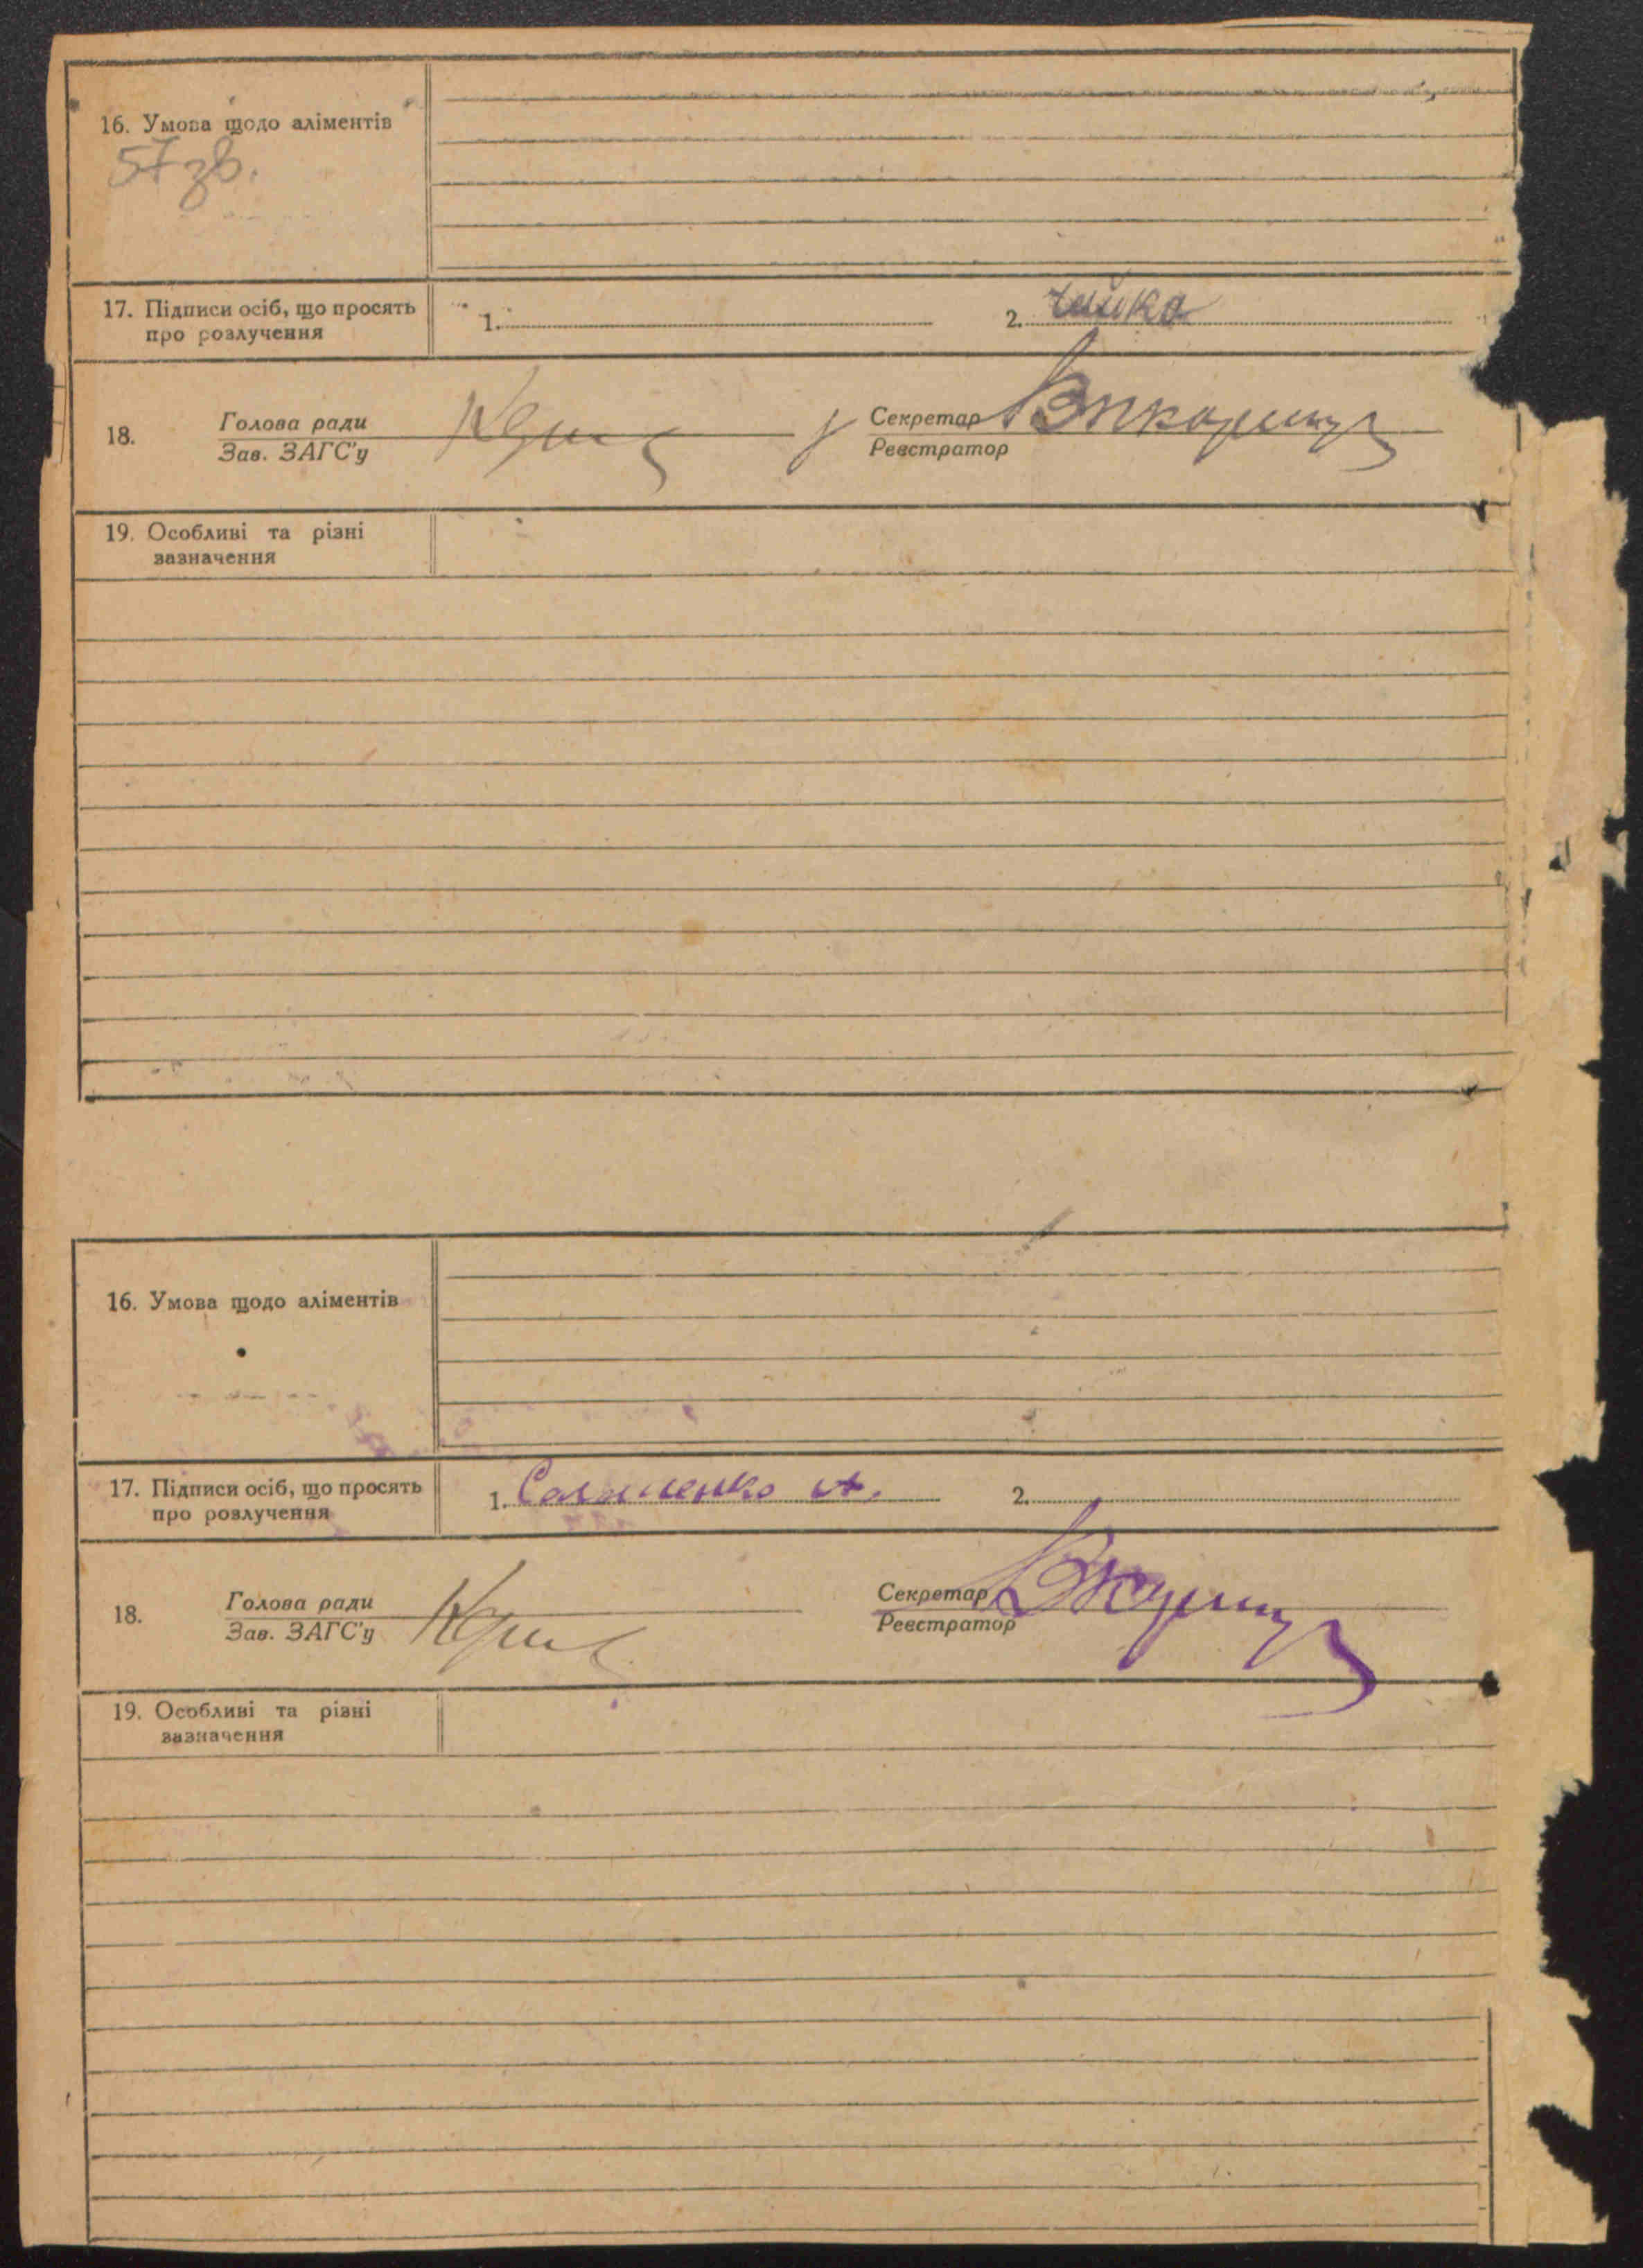 16. Умова щодо аліментів
57 зв.
17. Підписи осіб, що просять
про розлучення
1.
2. Чайка
18.
Голова ради
Зав. ЗАГС'у
Секретар
Реєстратор
19. Особливі та різні
зазначення
16. Умова щодо аліментів
17. Підписи осіб, що просять
про розлучення
1.
2.
18.
Голова ради
Зав. ЗАГС'у
Секретар
Реєстратор
19. Особливі та різні
зазначення